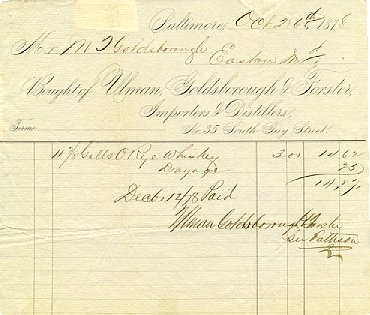 Baltimore, Oct 26th 1878
M Goldsborough
Easton Md.
Bought of Ulman, Goldsborough & Forster,
Importers & Distillers,
Terms No. 33 South Gay Street.
4 7/8 Galls O Rye Whiskey 3 00 14.62
Drayage 25
14.87
Decbr 12/78 Paid
Ulman Goldsborough Forster
Pattison